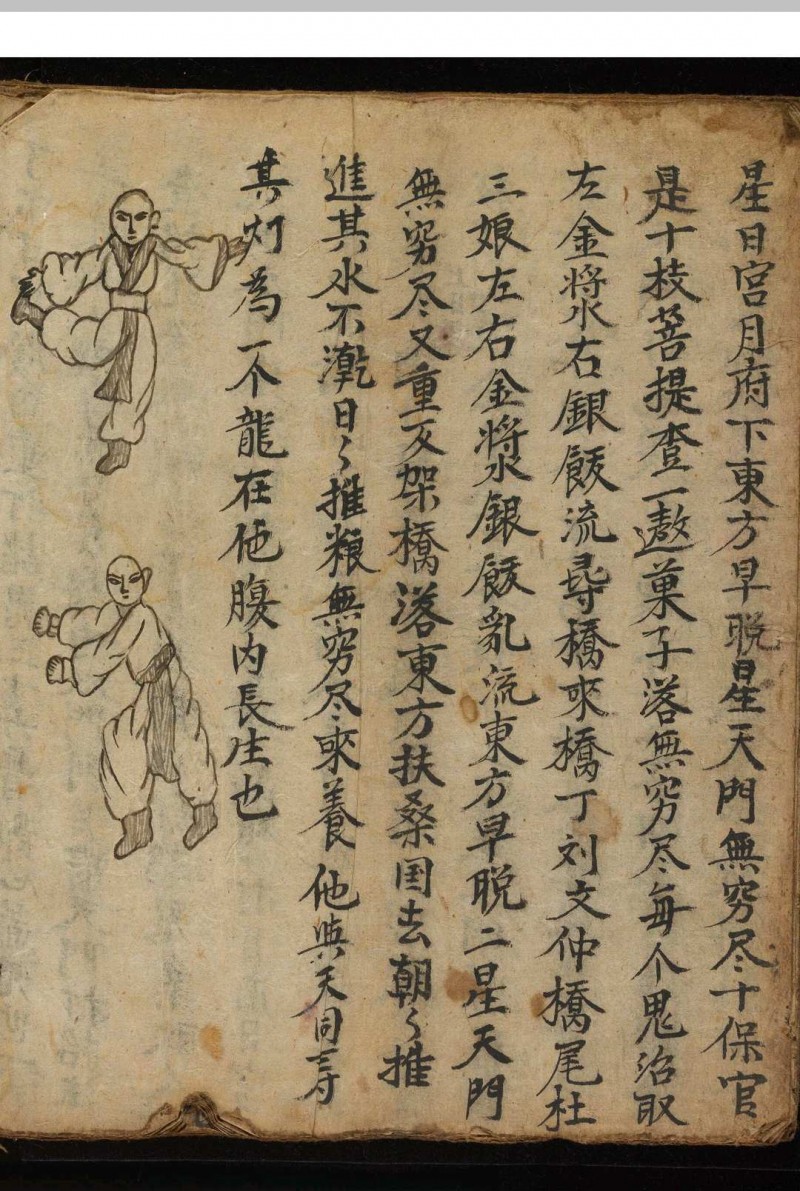 星日宫月府下東方早晚星天門無穷尽十保官
是十枝菩提查一遨菓子落無穷尽每个鬼治取
左金將水右銀飯流尋橋來橋丁刘文仲橋尾杜
三娘左右金將水銀飯乱流東方早晚二星天門
無穷尽又重又架橋落東方扶桑国去朝々推
進其水不漧日々推粮無穷尽來養他與天同寿
其灯為一个龍在他腹内長生也